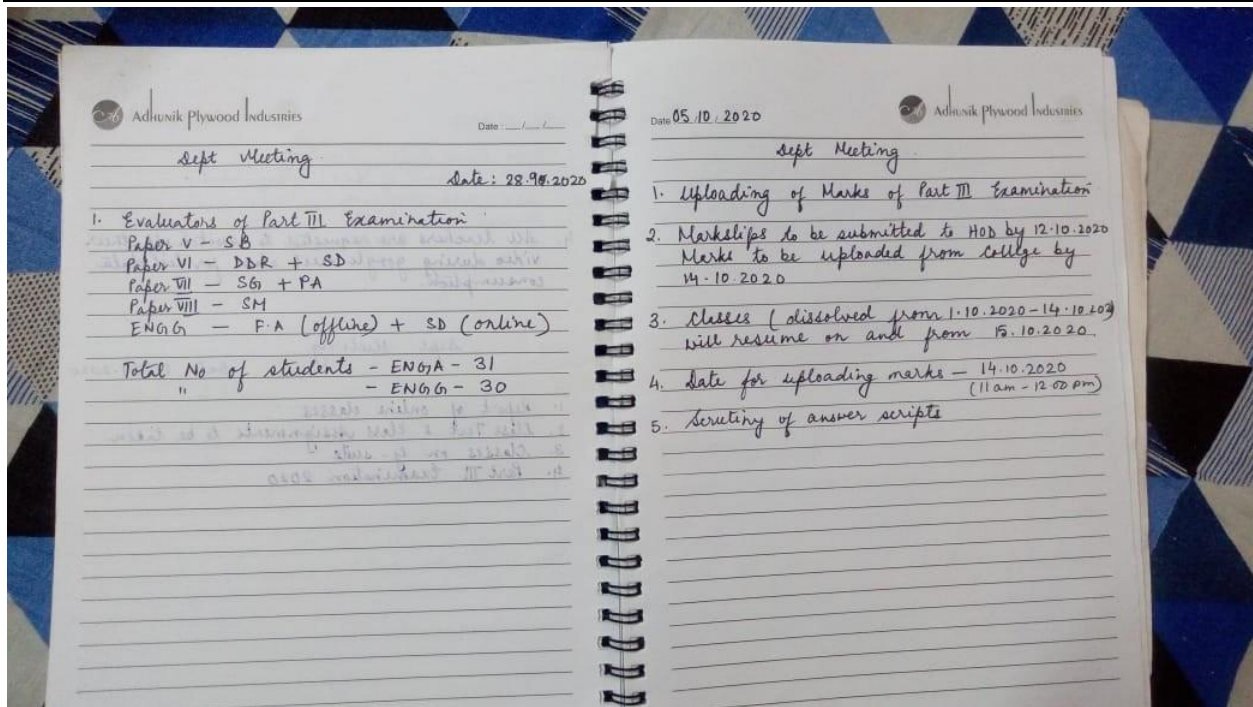 Adhunik Plywood Industries
Date : __/__/__
Dept Meeting
Date: 28.9.2020
1. Evaluators of Part III Examination
Paper V - SB
Paper VI - DDR + SD
Paper VII - SG + PA
Paper VIII - SM
ENGG - F.A (offline) + SD (online)
Total No of students - ENGA - 31
" - ENGG - 30
Adhunik Plywood Industries
Date 05.10.2020
Dept Meeting
1. Uploading of Marks of Part III Examination
2. Markslips to be submitted to HOD by 12.10.2020
Marks to be uploaded from College by
14.10.2020
3. Classes (dissolved from 1.10.2020 - 14.10.202)
will resume on and from 15.10.2020.
4. Date for uploading marks - 14.10.2020
(11am - 12.00 pm)
5. Scrutiny of answer scripts